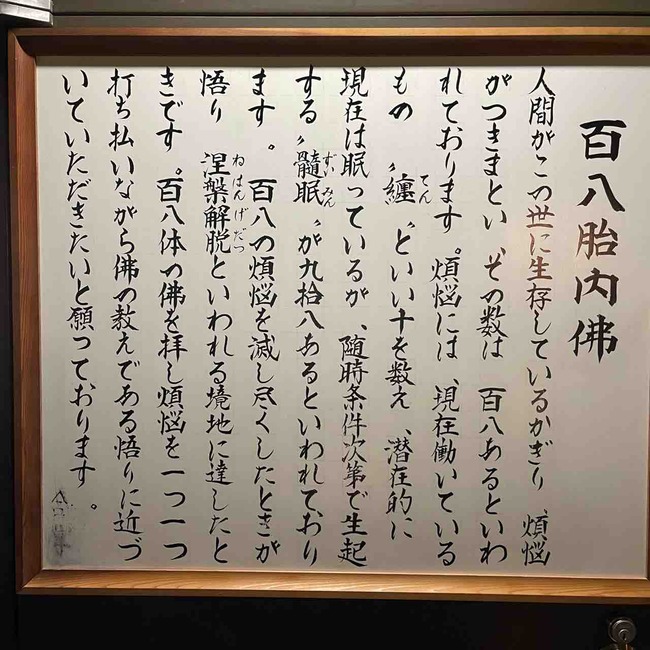 百八胎内佛
人間がこの世に生存しているかぎり、煩悩
がつきまとい、その数は 百八あるといわ
れております。煩悩には、現在働いている
もの 〝纏〟といい十を数え、潜在的に
てん
現在は眠っているが、随時条件次第で生起
する〝髓眠〟が九拾八あるといわれており
ずいみん
ます。 百八の煩悩を滅し尽くしたときが
悟り 涅槃解脱といわれる境地に達したと
ねはんげだつ
きです。百八体の佛を拝し煩悩を一つ一つ
打ち払いながら佛の教えである悟りに近づ
いていただきたいと願っております。